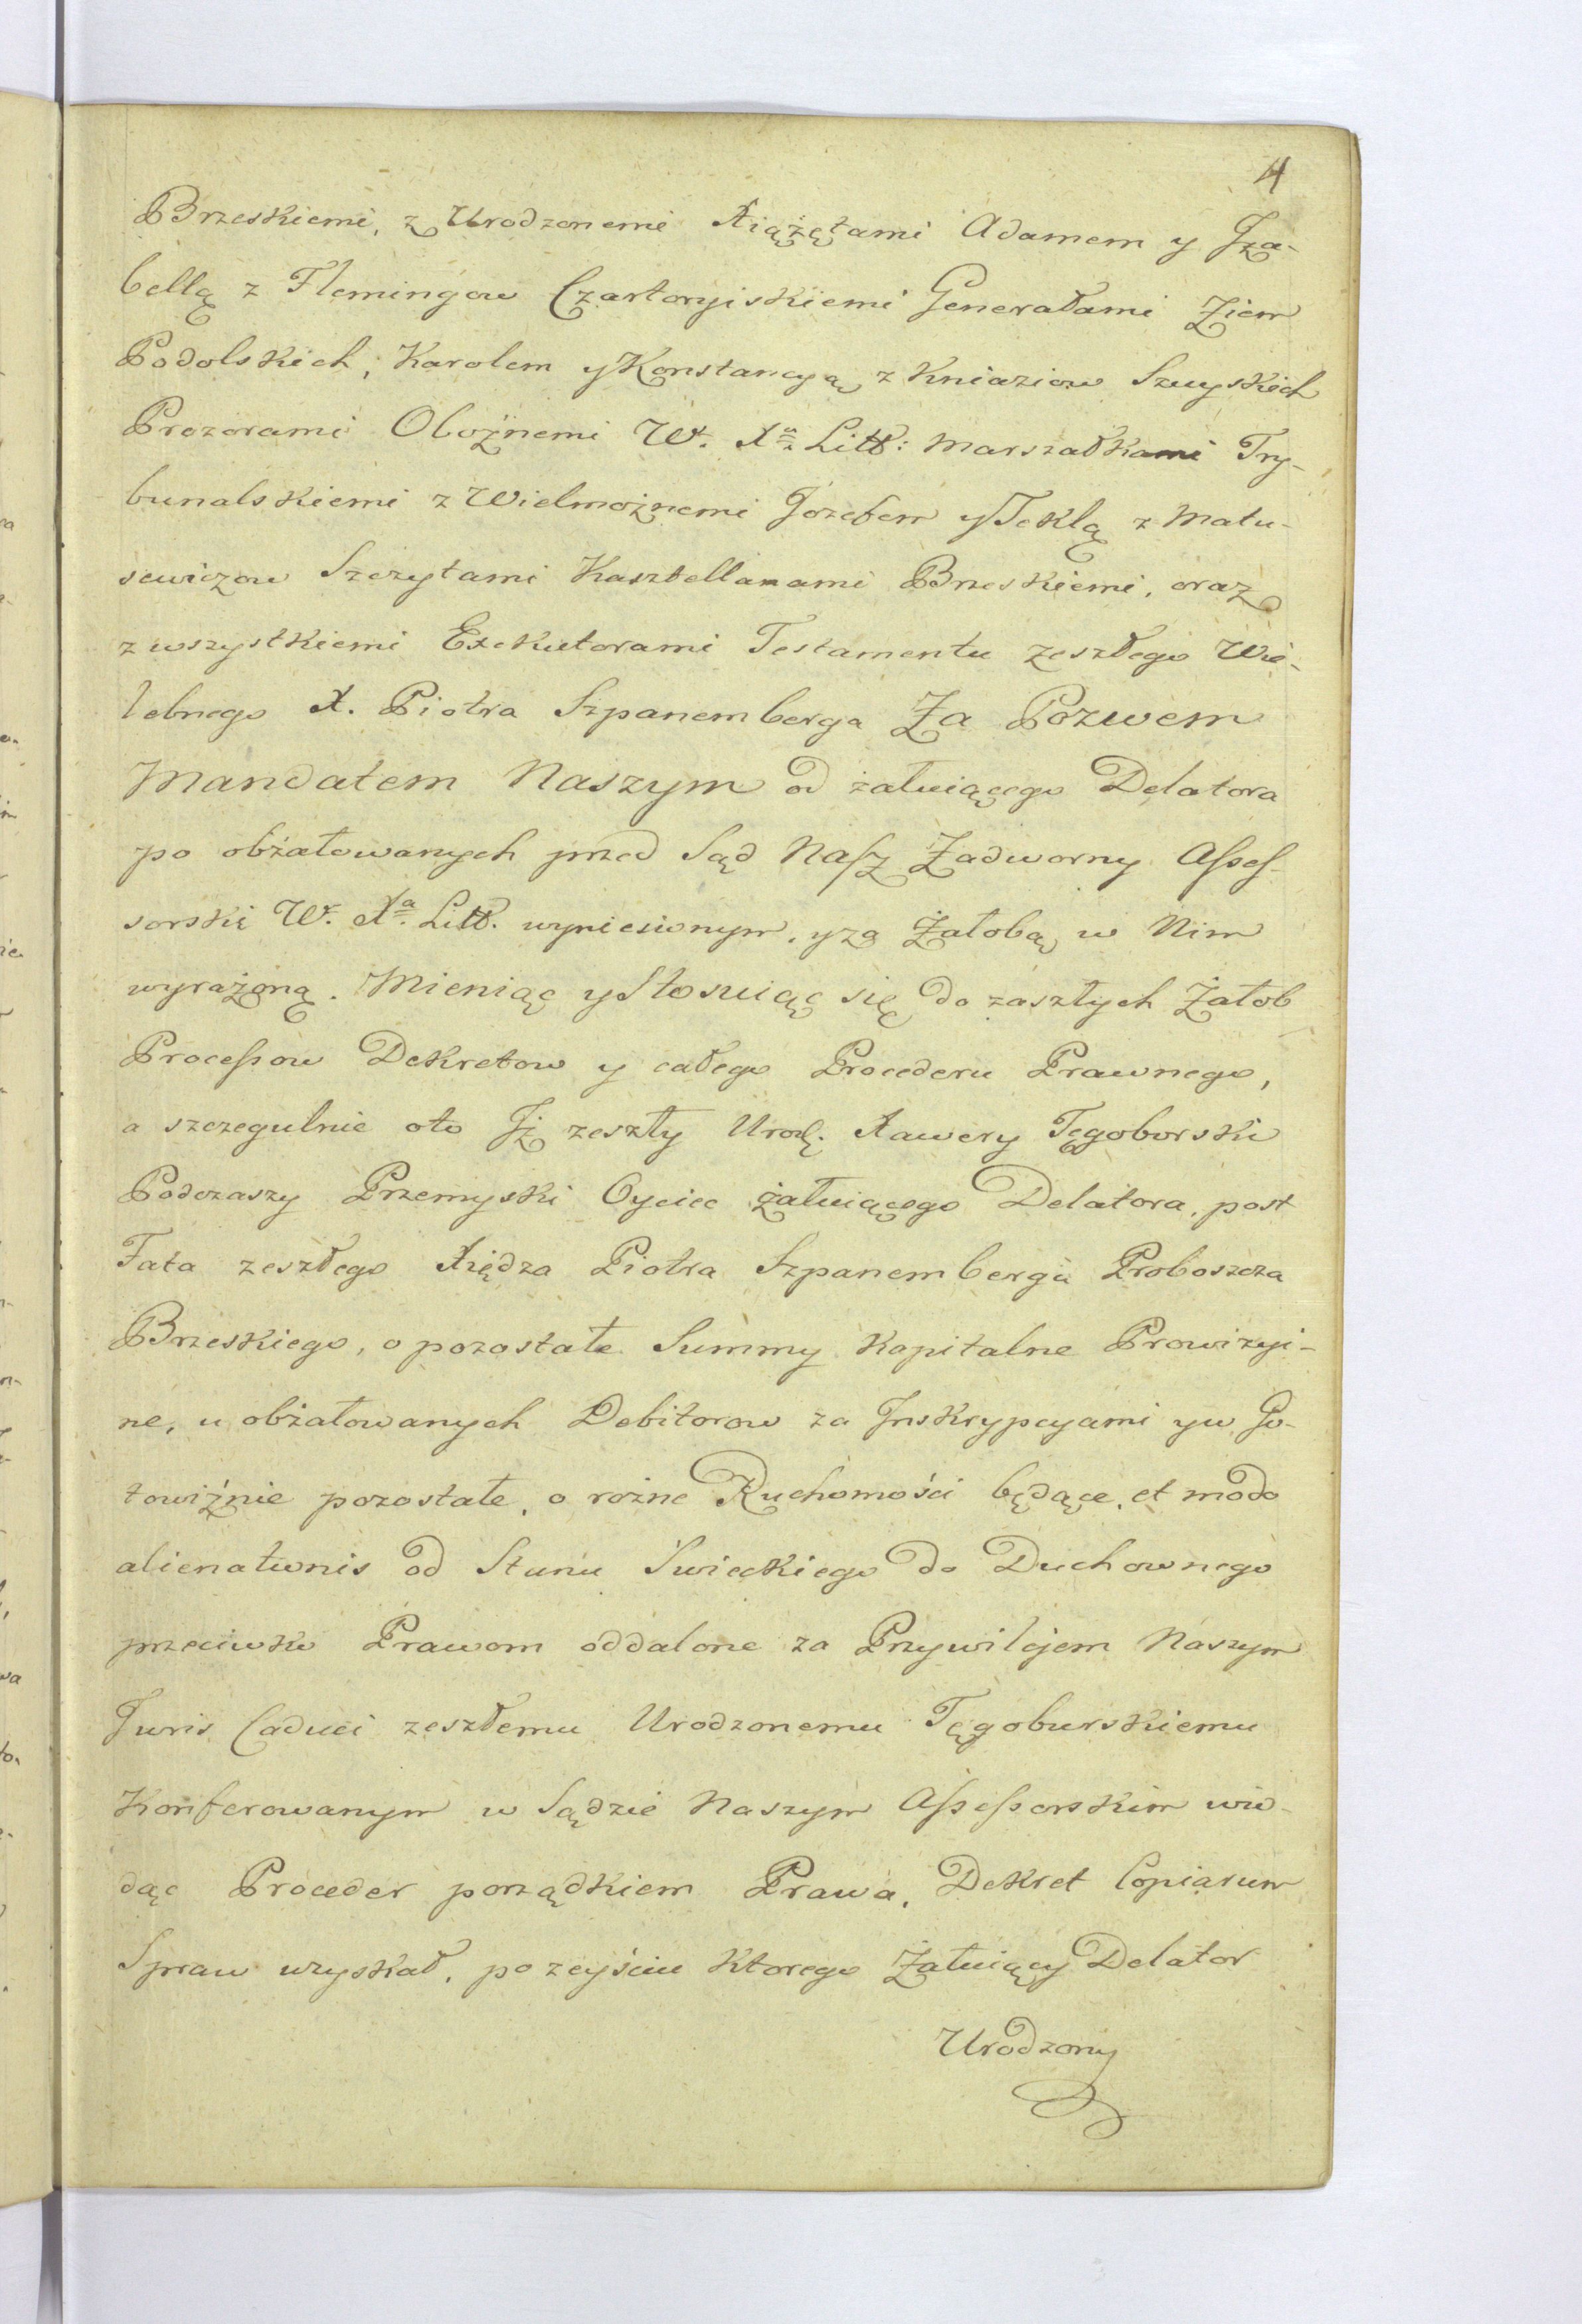 4
Brzeskiemi, z Urodzonemi Xiążętami Adamem y Iza-
bellą z Flemingow Czartoryiskiemi Generałami Ziem
Podolskich, Karolem y Konstancyą z Kniaziow Szuyskich
Prozorami Oboźnemi W. Xa Litt: Marszałkami Try-
bunalskiemi z Wielmożnemi Jozefem y Teklą z Matu-
sewiczow Szczytami Kasztellanami Brzeskiemi, oraz
z wszystkiemi Exekutorami Testamentu zeszłego Wie-
lebnego X. Piotra Szpanemberga Za Pozwem
Mandatem Naszym od żałuiącego Delatora
po obżałowanych przed Sąd Nasz Zadworny Asses-
sorski W. Xa Litt. wyniesionym, y za Żałobą w Nim
wyrażoną. Mieniąc y Stosuiąc się do zaszłych Żałob
Processow Dekretow y całego Procederu Prawnego,
a szczegulnie oto Iż zeszły Urodz. Xawery Tęgoborski
Podczaszy Przemyski Oyciec żałuiącego Delatora, post
Fata zeszłego Xiędza Piotra Szpanemberga Proboszcza
Brzeskiego, o pozostałe Summy Kapitalne Prowizyi-
ne, u obżałowanych Debitorow za Inskrypcyami y w Go-
towiźnie pozostałe, o rożne Ruchomości będące, et modo
alienationis od Stanu Swieckiego do Duchownego
przeciwko Prawom oddalone za Przywilejem Naszym
Juris Caduci zeszłemu Urodzonemu Tęgoburskiemu
Konferowanym w Sądzie Naszym Assessorskim wio-
dąc Proceder porządkiem Prawa, Dekret Copiarum
Spraw uzyskał, po zeyściu ktorego Żałuiący Delator
Urodzony